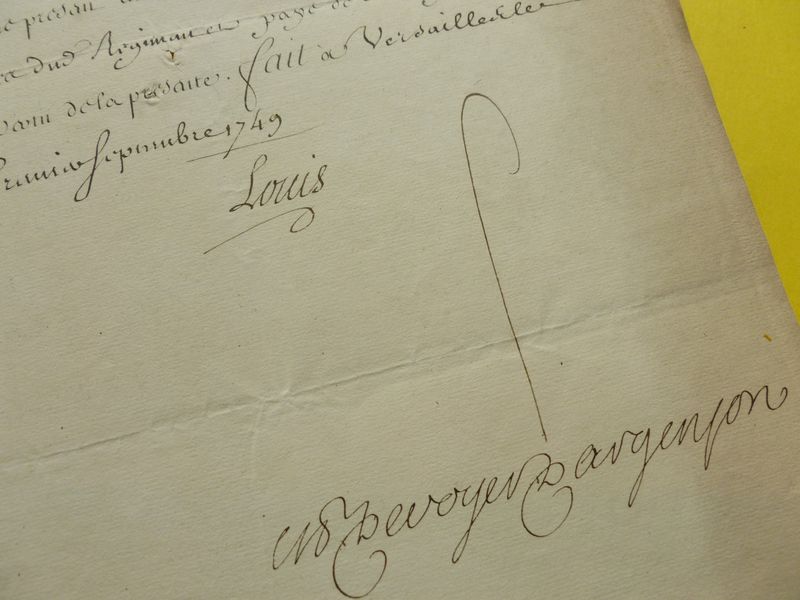 présant
dud Regiment et paye de
de la presante. fait a Versailles le
Septembre 1749
Louis
De voyer D argenson